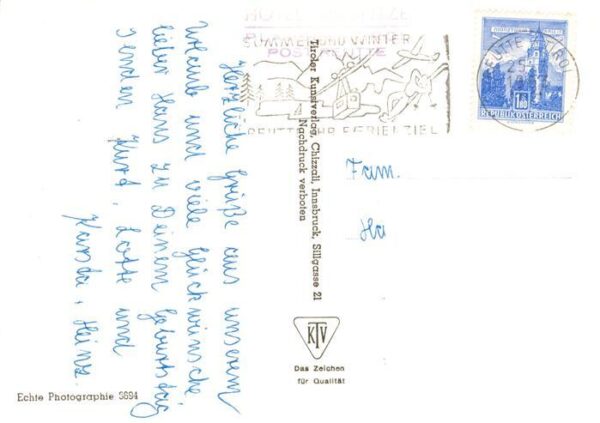 Herzliche Grüße aus unserem
Urlaub und viele Glückwünsche
lieber Hans zu Deinem Geburtstag
senden Kurd, Lotte und
Karsta, Heinz.
SOMMER UND WINTER
POST REUTTE
REUTTE IHR FERIENZIEL
REUTTE TIROL
1.80
REPUBLIK ÖSTERREICH
Tiroler Kunstverlag, Chizzali, Innsbruck, Sillgasse 21
Nachdruck verboten
Fam.
Ha
KTV
Das Zeichen
für Qualität
Echte Photographie 5694